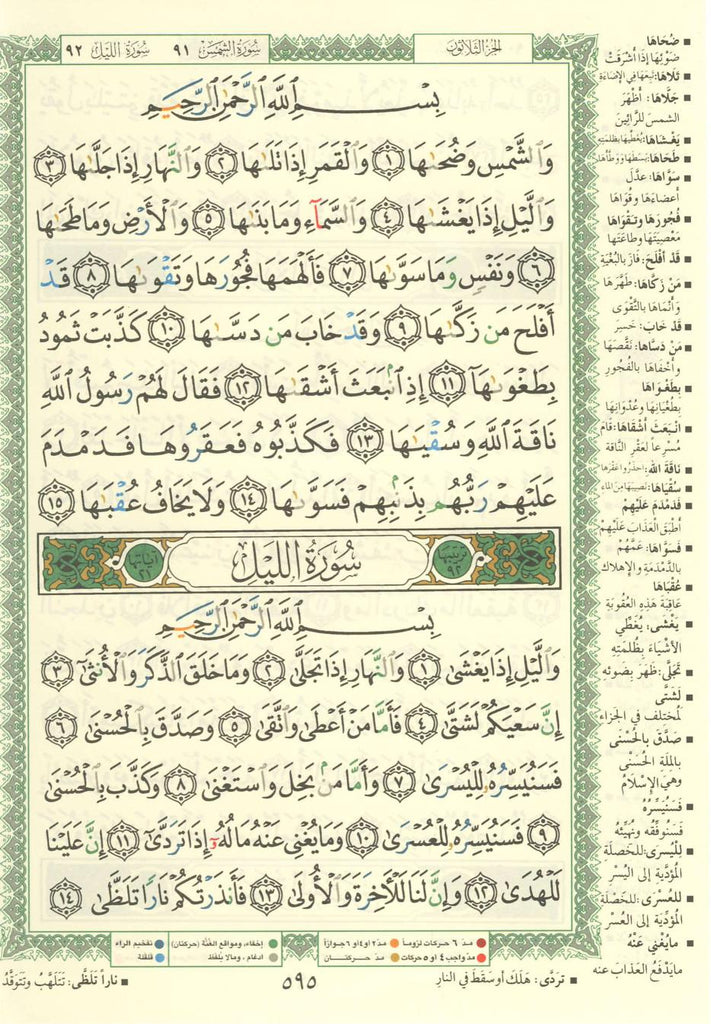 سُورَةُ الشَّمْسِ ٩١ سُورَةُ اللَّيْلِ ٩٢
الجُزْءُ الثَّلَاثُونَ
بِسْمِ ٱللَّهِ ٱلرَّحْمَٰنِ ٱلرَّحِيمِ
وَٱلشَّمْسِ وَضُحَىٰهَا ١ وَٱلْقَمَرِ إِذَا تَلَىٰهَا ٢ وَٱلنَّهَارِ إِذَا جَلَّىٰهَا ٣
وَٱلَّيْلِ إِذَا يَغْشَىٰهَا ٤ وَٱلسَّمَآءِ وَمَا بَنَىٰهَا ٥ وَٱلْأَرْضِ وَمَا طَحَىٰهَا
٦ وَنَفْسٍ وَمَا سَوَّىٰهَا ٧ فَأَلْهَمَهَا فُجُورَهَا وَتَقْوَىٰهَا ٨ قَدْ
أَفْلَحَ مَن زَكَّىٰهَا ٩ وَقَدْ خَابَ مَن دَسَّىٰهَا ١٠ كَذَّبَتْ ثَمُودُ
بِطَغْوَىٰهَآ ١١ إِذِ ٱنۢبَعَثَ أَشْقَىٰهَا ١٢ فَقَالَ لَهُمْ رَسُولُ ٱللَّهِ
نَاقَةَ ٱللَّهِ وَسُقْيَٰهَا ١٣ فَكَذَّبُوهُ فَعَقَرُوهَا فَدَمْدَمَ
عَلَيْهِمْ رَبُّهُم بِذَنۢبِهِمْ فَسَوَّىٰهَا ١٤ وَلَا يَخَافُ عُقْبَٰهَا ١٥
ترتيبها ٩٢ سُورَةُ اللَّيْلِ آياتها ٢١
بِسْمِ ٱللَّهِ ٱلرَّحْمَٰنِ ٱلرَّحِيمِ
وَٱلَّيْلِ إِذَا يَغْشَىٰ ١ وَٱلنَّهَارِ إِذَا تَجَلَّىٰ ٢ وَمَا خَلَقَ ٱلذَّكَرَ وَٱلْأُنثَىٰٓ ٣
إِنَّ سَعْيَكُمْ لَشَتَّىٰ ٤ فَأَمَّا مَنْ أَعْطَىٰ وَٱتَّقَىٰ ٥ وَصَدَّقَ بِٱلْحُسْنَىٰ ٦
فَسَنُيَسِّرُهُۥ لِلْيُسْرَىٰ ٧ وَأَمَّا مَنۢ بَخِلَ وَٱسْتَغْنَىٰ ٨ وَكَذَّبَ بِٱلْحُسْنَىٰ
٩ فَسَنُيَسِّرُهُۥ لِلْعُسْرَىٰ ١٠ وَمَا يُغْنِى عَنْهُ مَالُهُۥٓ إِذَا تَرَدَّىٰٓ ١١ إِنَّ عَلَيْنَا
لَلْهُدَىٰ ١٢ وَإِنَّ لَنَا لَلْءَاخِرَةَ وَٱلْأُولَىٰ ١٣ فَأَنذَرْتُكُمْ نَارًا تَلَظَّىٰ ١٤
■ ضُحَاهَا
ضَوْئِهَا إِذَا أَشْرَقَتْ
■ تَلَاهَا: تَبِعَهَا فِي الإِضَاءَةِ
■ جَلَّاهَا: أَظْهَرَ
الشمسَ للرَّائِينَ
■ يَغْشَاهَا: يُغَطِّيهَا بِظُلْمَتِهِ
■ طَحَاهَا: بَسَطَهَا وَوَطَّأَهَا
■ سَوَّاهَا: عَدَّلَ
أَعْضَاءَهَا وَقُوَاهَا
■ فُجُورَهَا وَتَقْوَاهَا
مَعْصِيَتَهَا وَطَاعَتَها
■ قَدْ أَفْلَحَ: فَازَ بِالْبُغْيَةِ
■ مَنْ زَكَّاهَا: طَهَّرَهَا
وَأَنْمَاهَا بِالتَّقْوَى
■ قَدْ خَابَ: خَسِرَ
■ مَنْ دَسَّاهَا: نَقَّصَهَا
وَأَخْفَاهَا بِالْفُجُورِ
■ بِطَغْوَاهَا
بِطُغْيَانِهَا وَعُدْوَانِهَا
■ انْبَعَثَ أَشْقَاهَا: قَامَ
مُسْرِعاً لعَقْرِ النَّاقَة
■ نَاقَةَ الله: احْذَرُوا عَقْرَهَا
■ سُقْيَاهَا: نَصِيبَهَا مِنَ الماءِ
■ فَدَمْدَمَ عَلَيْهِمْ
أَطْبَقَ العَذَابَ عَلَيْهِمْ
■ فَسَوَّاهَا: عَمَّهُمْ
بالدَّمْدَمَةِ والإِهْلاك
■ عُقْبَاهَا
عَاقِبَةَ هَذِهِ الْعُقُوبَةِ
■ يَغْشَى: يُغَطِّي
الأَشْيَاءَ بِظُلْمَتِهِ
■ تَجَلَّى: ظَهَرَ بِضَوئِهِ
■ لَشَتَّى
لَمُخْتَلِفٌ في الْجَزَاءِ
■ صَدَّقَ بِالْحُسْنَى
بِالمِلَّةِ الْحُسْنَى
وَهِيَ الإِسْلَامُ
■ فَسَنُيَسِّرُهُ
فَسَنُوَفِّقُهُ وَنُهَيِّئُهُ
■ لِلْيُسْرَى: للْخَصْلَةِ
الْمُؤَدِّيَةِ إِلَى الْيُسْرِ
■ لِلْعُسْرَى: للخَصْلَةِ
الْمُؤَدِّيَةِ إِلَى الْعُسْرِ
■ مَا يُغْنِي عَنْهُ
مَا يَدْفَعُ الْعَذَابَ عنه
■ تَرَدَّى: هَلَكَ أو سَقَطَ في النارِ
■ ناراً تَلَظَّى: تَتَلَهَّبُ وَتَتَوَقَّدُ
مدّ ٦ حركات لزوماً مدّ ٢ أو ٤ أو ٦ جوازاً
مدّ واجب ٤ أو ٥ حركات مدّ حركتـــان
إخفاء، ومواقع الغُنَّة (حركتان)
ادغام، ومالا يُلفظ
تفخيم الراء
قلقلة
٥٩٥